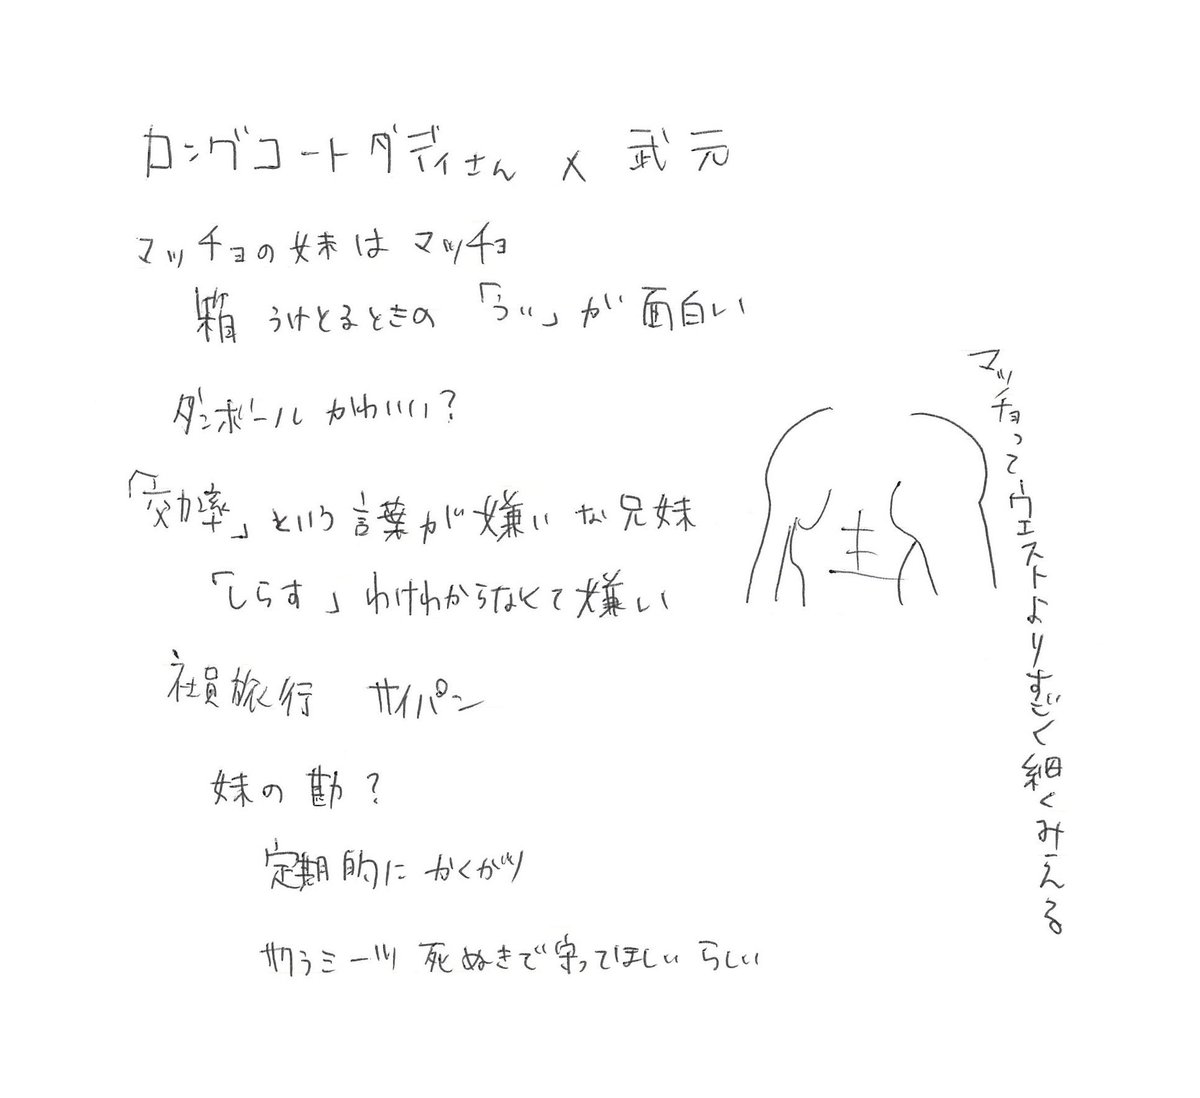 ロングコートダディさん × 武元
マッチョの妹は マッチョ
箱 うけとるときの 「うい」が 面白い
ダンボール かわいい?
「効率」という言葉が嫌いな兄妹
「しらす」わけわからなくて嫌い
社員旅行 サイパン
妹の勘?
定期的に かくがツ
サクラミーツ 死ぬきで守ってほしい らしい
マッチョってウエストよりすごく細くみえる